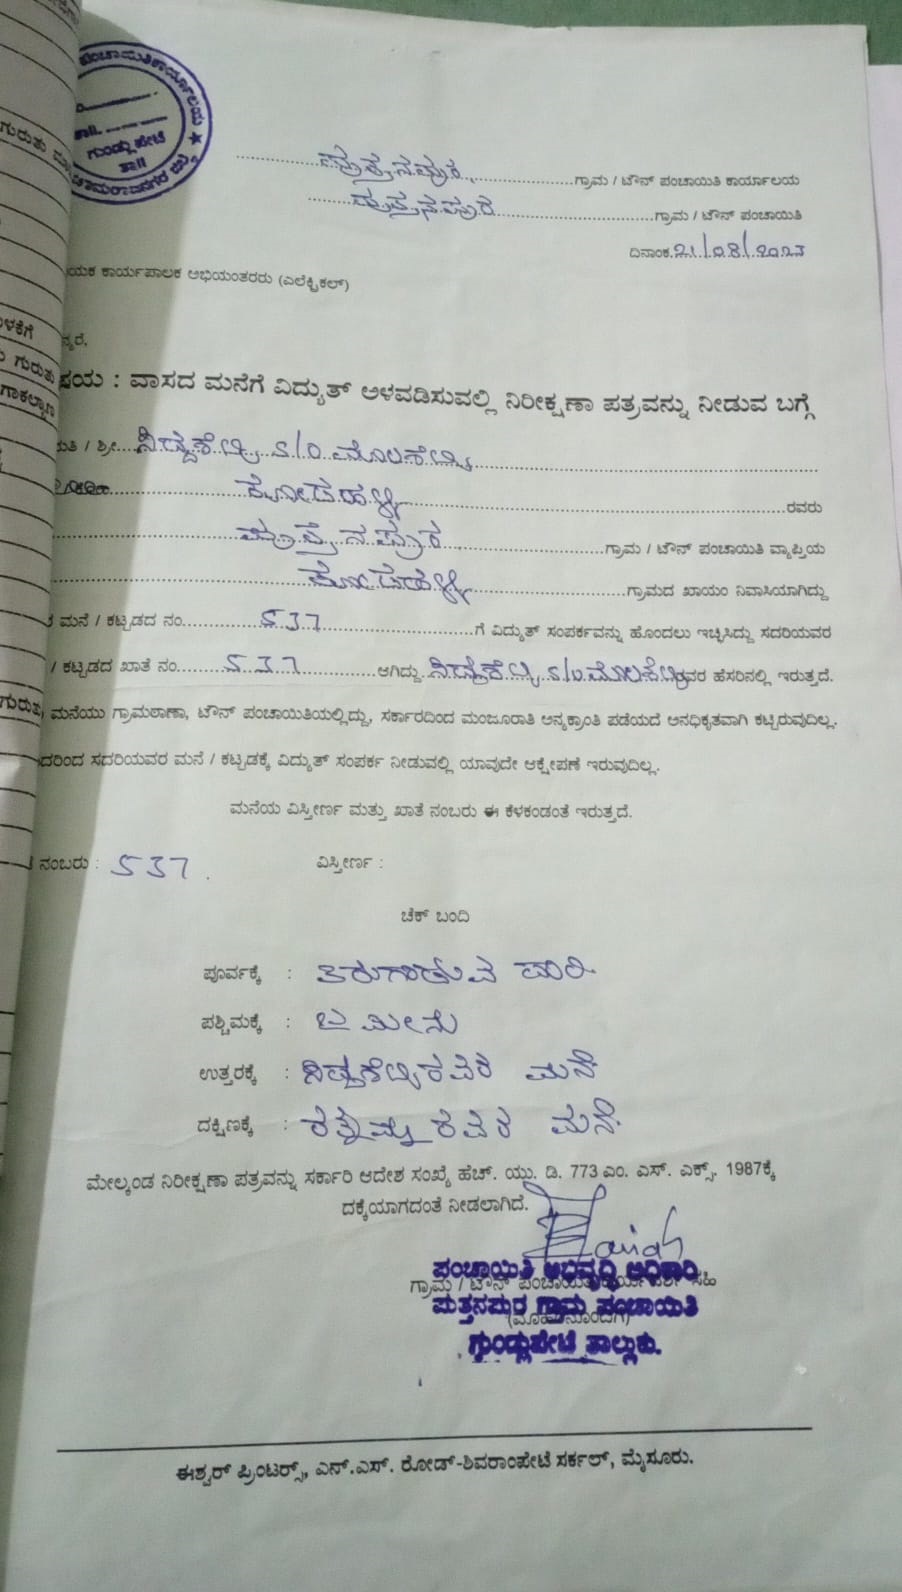 ಪಂಚಾಯಿತಿ ಕಾರ್ಯಾಲಯ
ಗುಂಡ್ಲುಪೇಟೆ
ತಾ||
ಚಾಮರಾಜನಗರ
ಗ್ರಾಮ / ಟೌನ್ ಪಂಚಾಯಿತಿ ಕಾರ್ಯಾಲಯ
ಗ್ರಾಮ / ಟೌನ್ ಪಂಚಾಯಿತಿ
ದಿನಾಂಕ 21/08/2023
ಯಕ ಕಾರ್ಯಪಾಲಕ ಅಭಿಯಂತರರು (ಎಲೆಕ್ಟ್ರಿಕಲ್)
ನ್ಯರೆ,
ಷಯ : ವಾಸದ ಮನೆಗೆ ವಿದ್ಯುತ್ ಅಳವಡಿಸುವಲ್ಲಿ ನಿರೀಕ್ಷಣಾ ಪತ್ರವನ್ನು ನೀಡುವ ಬಗ್ಗೆ
ಮತಿ / ಶ್ರೀ ಸಿದ್ದಶೆಟ್ಟಿ S/O ಮೊಲಶೆಟ್ಟಿ
ಕೋಡಹಳ್ಳಿ ರವರು
ಗ್ರಾಮ / ಟೌನ್ ಪಂಚಾಯಿತಿ ವ್ಯಾಪ್ತಿಯ
ಕೋಡಹಳ್ಳಿ ಗ್ರಾಮದ ಖಾಯಂ ನಿವಾಸಿಯಾಗಿದ್ದು
ಮನೆ / ಕಟ್ಟಡದ ನಂ. 537 ಗೆ ವಿದ್ಯುತ್ ಸಂಪರ್ಕವನ್ನು ಹೊಂದಲು ಇಚ್ಛಿಸಿದ್ದು ಸದರಿಯವರ
/ ಕಟ್ಟಡದ ಖಾತೆ ನಂ. 537 ಆಗಿದ್ದು ಸಿದ್ದಶೆಟ್ಟಿ S/O ಮೊಲಶೆಟ್ಟಿ ರವರ ಹೆಸರಿನಲ್ಲಿ ಇರುತ್ತದೆ.
ಮನೆಯು ಗ್ರಾಮಠಾಣಾ, ಟೌನ್ ಪಂಚಾಯಿತಿಯಲ್ಲಿದ್ದು, ಸರ್ಕಾರದಿಂದ ಮಂಜೂರಾತಿ ಅನ್ಯಕ್ರಾಂತಿ ಪಡೆಯದೆ ಅನಧಿಕೃತವಾಗಿ ಕಟ್ಟಿರುವುದಿಲ್ಲ.
ದರಿಂದ ಸದರಿಯವರ ಮನೆ / ಕಟ್ಟಡಕ್ಕೆ ವಿದ್ಯುತ್ ಸಂಪರ್ಕ ನೀಡುವಲ್ಲಿ ಯಾವುದೇ ಆಕ್ಷೇಪಣೆ ಇರುವುದಿಲ್ಲ.
ಮನೆಯ ವಿಸ್ತೀರ್ಣ ಮತ್ತು ಖಾತೆ ನಂಬರು ಈ ಕೆಳಕಂಡಂತೆ ಇರುತ್ತದೆ.
ನಂಬರು : 537. ವಿಸ್ತೀರ್ಣ :
ಚೆಕ್ ಬಂದಿ
ಪೂರ್ವಕ್ಕೆ : ತಿರುಗಾಡುವ ದಾರಿ
ಪಶ್ಚಿಮಕ್ಕೆ : ಜಮೀನು
ಉತ್ತರಕ್ಕೆ : ಸಿದ್ದಶೆಟ್ಟಿರವರ ಮನೆ
ದಕ್ಷಿಣಕ್ಕೆ : ರವರ ಮನೆ
ಮೇಲ್ಕಂಡ ನಿರೀಕ್ಷಣಾ ಪತ್ರವನ್ನು ಸರ್ಕಾರಿ ಆದೇಶ ಸಂಖ್ಯೆ ಹೆಚ್. ಯು. ಡಿ. 773 ಎಂ. ಎಸ್. ಎಕ್ಸ್. 1987ಕ್ಕೆ
ದಕ್ಕೆಯಾಗದಂತೆ ನೀಡಲಾಗಿದೆ.
ಪಂಚಾಯಿತಿ ಅಭಿವೃದ್ಧಿ ಅಧಿಕಾರಿ
ಗ್ರಾಮ / ಟೌನ್ ಪಂಚಾಯಿತಿ ಕಾರ್ಯದರ್ಶಿ ಸಹಿ
ಪುತ್ತನಪುರ ಗ್ರಾಮ ಪಂಚಾಯಿತಿ
(ಮೊಹರಿನೊಂದಿಗೆ)
ಗುಂಡ್ಲುಪೇಟೆ ತಾಲ್ಲೂಕು.
ಈಶ್ವರ್ ಪ್ರಿಂಟರ್ಸ್, ಎನ್.ಎಸ್. ರೋಡ್-ಶಿವರಾಂಪೇಟೆ ಸರ್ಕಲ್, ಮೈಸೂರು.